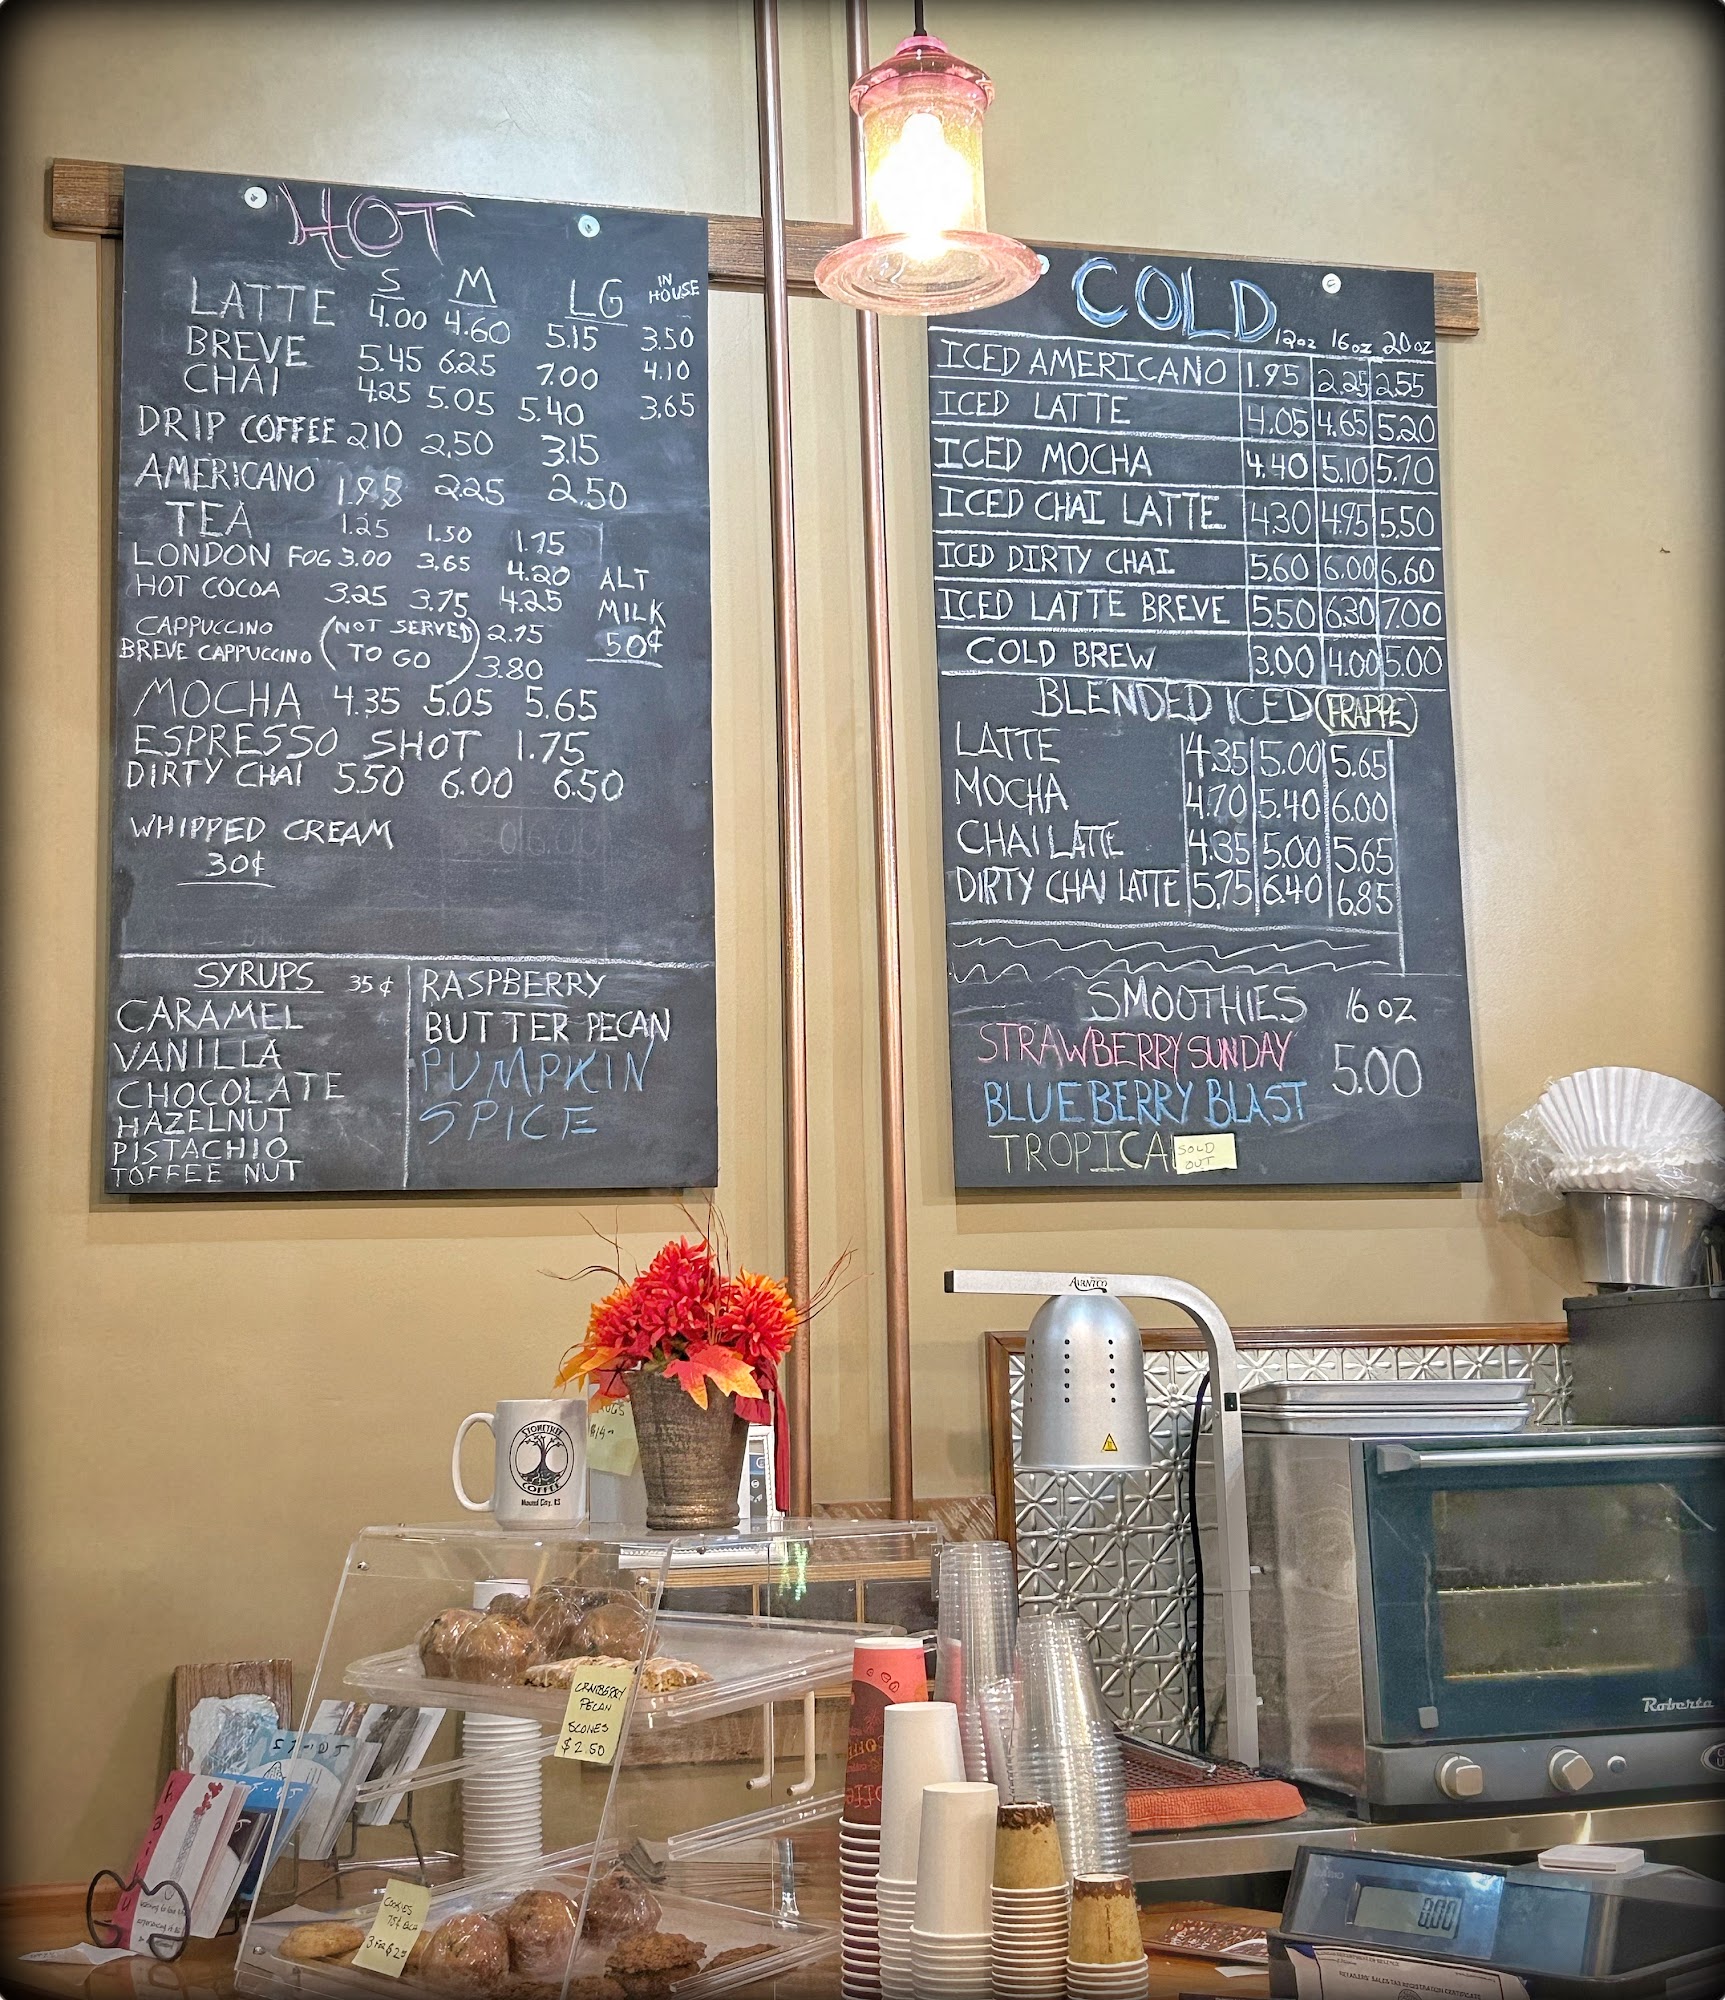 HOT
S M LG IN HOUSE
LATTE 4.00 4.60 5.15 3.50
BREVE 5.45 6.25 7.00 4.10
CHAI 4.25 5.05 5.40 3.65
DRIP COFFEE 2.10 2.50 3.15
AMERICANO 1.95 2.25 2.50
TEA 1.25 1.50 1.75
LONDON FOG 3.00 3.65 4.20
HOT COCOA 3.25 3.75 4.25
ALT
MILK
50¢
CAPPUCCINO (NOT SERVED 2.75
BREVE CAPPUCCINO TO GO) 3.80
MOCHA 4.35 5.05 5.65
ESPRESSO SHOT 1.75
DIRTY CHAI 5.50 6.00 6.50
WHIPPED CREAM
30¢
SYRUPS 35¢
CARAMEL
VANILLA
CHOCOLATE
HAZELNUT
PISTACHIO
TOFFEE NUT
RASPBERRY
BUTTER PECAN
PUMPKIN
SPICE
COLD
12oz 16oz 20oz
ICED AMERICANO 1.95 2.25 2.55
ICED LATTE 4.05 4.65 5.20
ICED MOCHA 4.40 5.10 5.70
ICED CHAI LATTE 4.30 4.95 5.50
ICED DIRTY CHAI 5.60 6.00 6.60
ICED LATTE BREVE 5.50 6.30 7.00
COLD BREW 3.00 4.00 5.00
BLENDED ICED (FRAPPE)
LATTE 4.35 5.00 5.65
MOCHA 4.70 5.40 6.00
CHAI LATTE 4.35 5.00 5.65
DIRTY CHAI LATTE 5.75 6.40 6.85
SMOOTHIES 16 OZ
STRAWBERRY SUNDAY
BLUEBERRY BLAST 5.00
TROPICA
SOLD
OUT
AERNICO
STONEYTREE
COFFEE
Mound City, KS
CRANBERRY
PECAN
SCONES
$2.50
COOKIES
75¢ EACH
3 FOR $2.00
Roberta
haiku
0.00
RETAILERS' SALES TAX REGISTRATION CERTIFICATE